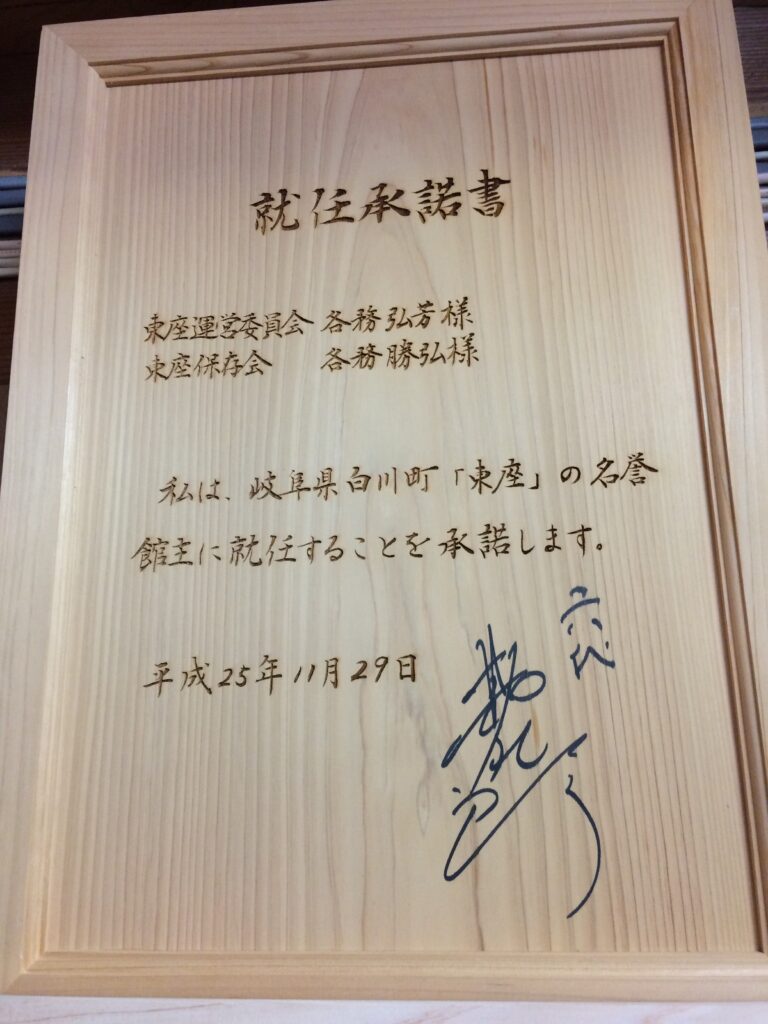 就任承諾書
東座運営委員会 各務弘芳様
東座保存会 各務勝弘様
私は、岐阜県白川町「東座」の名誉
館主に就任することを承諾します。
平成25年11月29日
六代